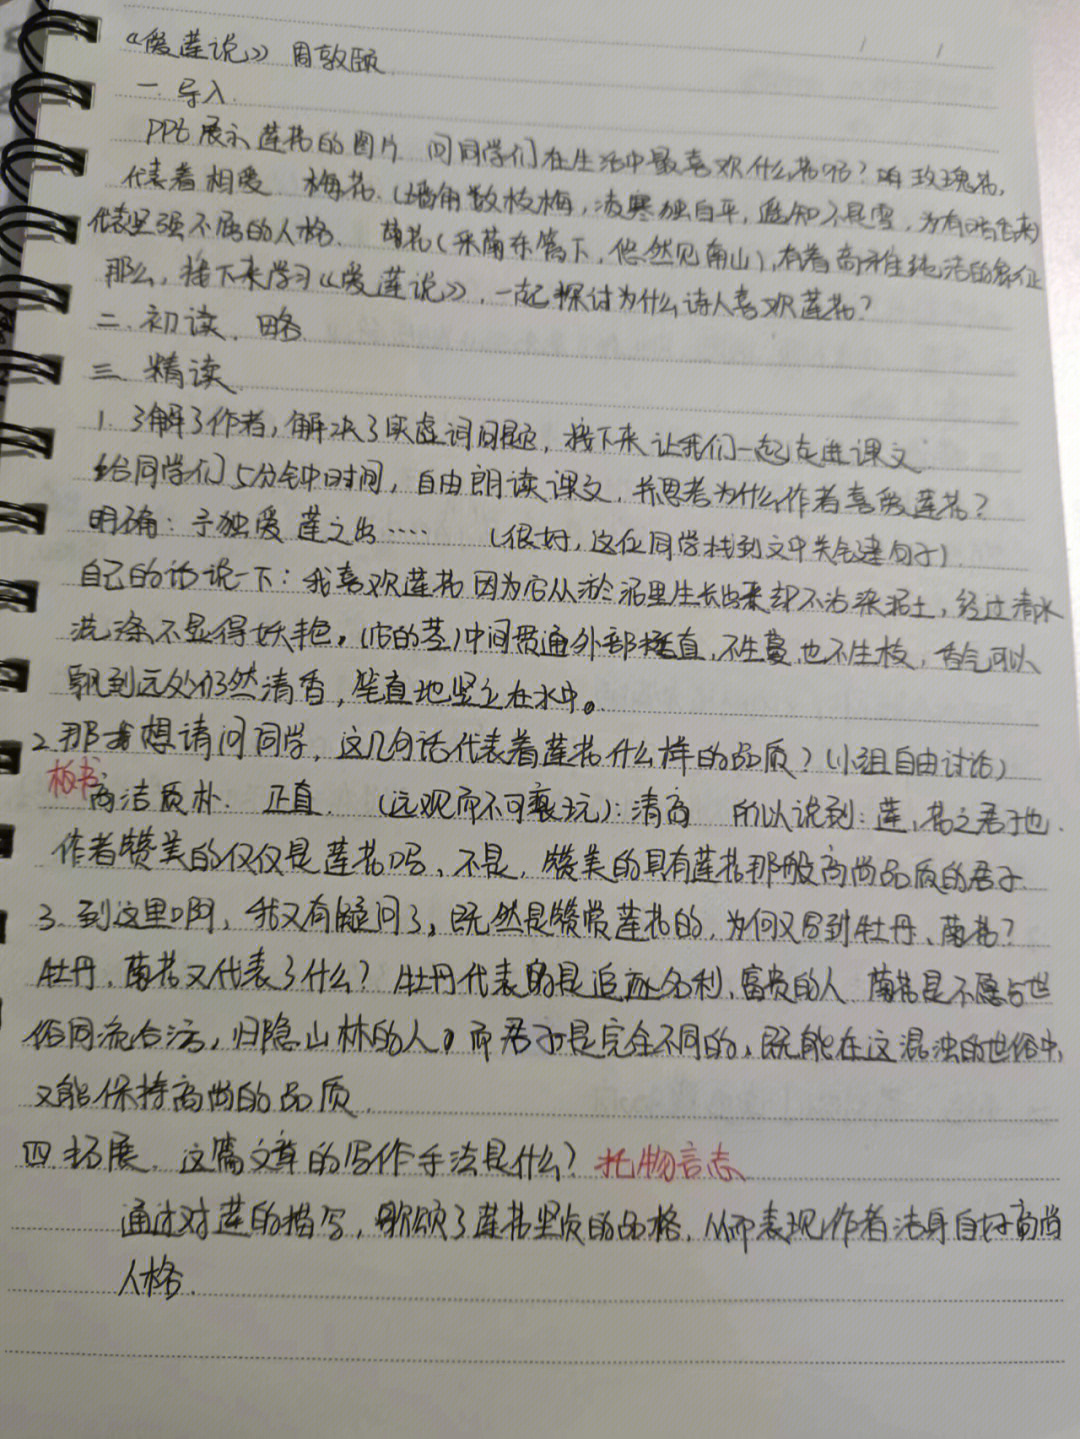 《爱莲说》 周敦颐
一. 导入.
PPt展示莲花的图片 问同学们在生活中最喜欢什么花呢?啊 玫瑰花,
代表着相爱 梅花.(墙角数枝梅,凌寒独自开,遥知不是雪,为有暗香来)
代表坚强不屈的人格、 菊花(采菊东篱下,悠然见南山),有着高雅纯洁的象征
那么,接下来学习《爱莲说》,一起探讨为什么诗人喜欢莲花?
二. 初读. 略
三. 精读.
1. 了解了作者,解决了实虚词问题,接下来让我们一起走进课文
给同学们5分钟时间,自由朗读课文,并思考为什么作者喜爱莲花?
明确:予独爱莲之出…… (很好,这位同学找到文中关键句子)
自己的话说一下:我喜欢莲花因为它从淤泥里生长出来却不沾染泥土,经过清水
洗涤不显得妖艳,(它的茎)中间贯通外部挺直,不生蔓也不生枝,香气可以
飘到远处仍然清香,笔直地竖立在水中。
2.那我想请问同学,这几句话代表着莲花什么样的品质?(小组自由讨论)
板书 高洁质朴. 正直. (远观而不可亵玩):清高 所以说到:莲,花之君子也.
作者赞美的仅仅是莲花吗、不是,赞美的具有莲花那般高尚品质的君子.
3. 到这里啊,我又有疑问了,既然是赞赏莲花的,为何又写到牡丹、菊花?
牡丹,菊花又代表了什么?牡丹代表的是追逐名利、富贵的人 菊花是不愿与世
俗同流合污,归隐山林的人,而君子是完全不同的,既能在这混浊的世俗中,
又能保持高尚的品质.
四.拓展. 这篇文章的写作手法是什么?托物言志
通过对莲的描写,歌颂了莲花坚贞的品格,从而表现作者洁身自好高尚
人格.